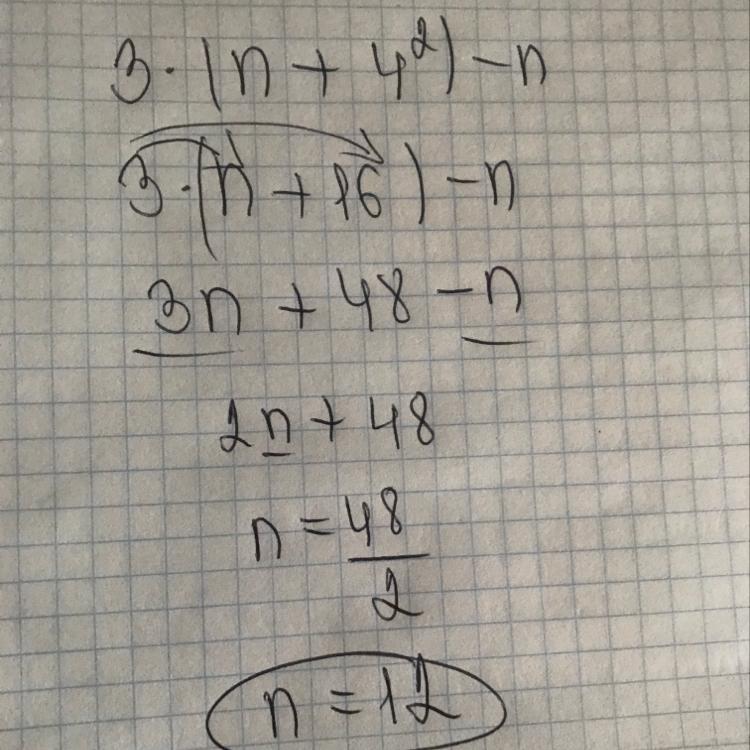 3·(n + 4²) - n
3·(n + 16) - n
3n + 48 - n
2n + 48
n = 48/2
n = 12